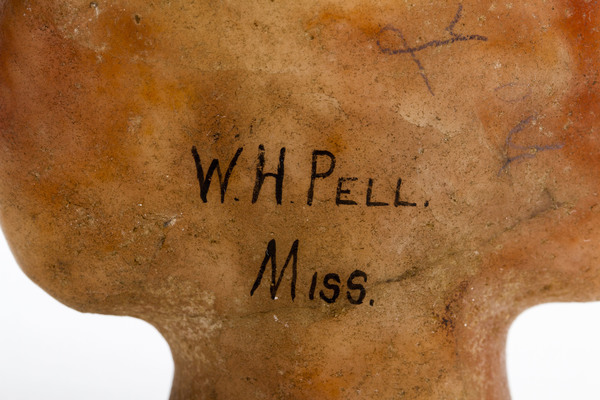 W. H. PELL.
MISS.